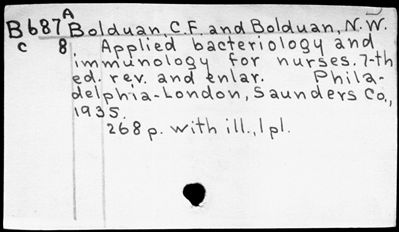 A
B687 Bolduan, C.F. and Bolduan, N.W.
c 8 Applied bacteriology and
immunology for nurses. 7-th
ed. rev. and enlar. Phila-
delphia-London, Saunders Co.,
1935.
268 p. with ill., 1 pl.